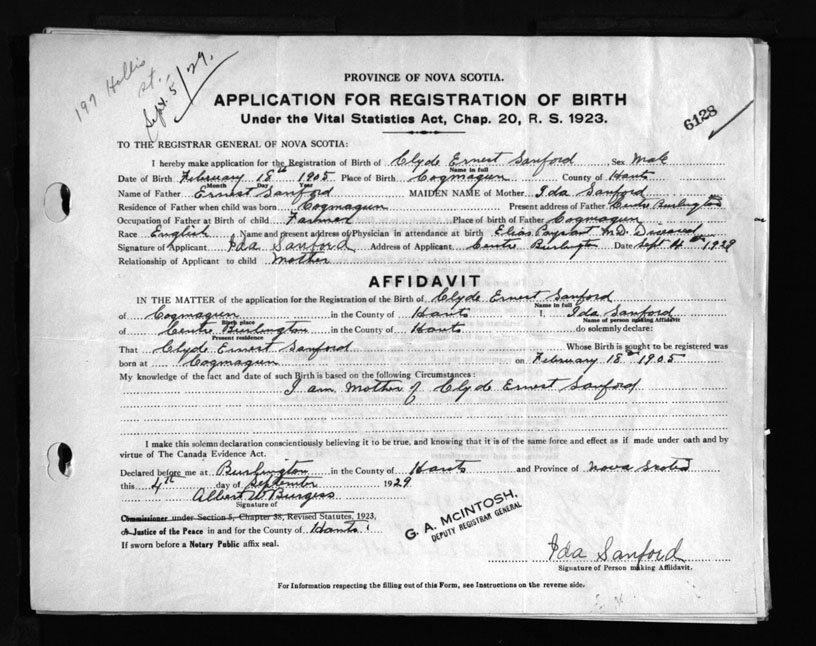 197 Hollis
St.,
Sept. 5/29.
PROVINCE OF NOVA SCOTIA.
APPLICATION FOR REGISTRATION OF BIRTH
Under the Vital Statistics Act, Chap. 20, R. S. 1923.
6128
TO THE REGISTRAR GENERAL OF NOVA SCOTIA:
I hereby make application for the Registration of Birth of Clyde Ernest Sanford Sex Male
Name in full
Date of Birth February 18th 1905 Place of Birth Cogmagun County of Hants
Month Day Year
Name of Father Ernest Sanford MAIDEN NAME of Mother Ida Sanford
Residence of Father when child was born Cogmagun Present address of Father Centre Burlington
Occupation of Father at Birth of child Farmer Place of birth of Father Cogmagun
Race English Name and present address of Physician in attendance at birth Elias Payzant M.D. Diseased
Signature of Applicant Ida Sanford Address of Applicant Centre Burlington Date Sept 4th 1929
Relationship of Applicant to child Mother
AFFIDAVIT
IN THE MATTER of the application for the Registration of the Birth of Clyde Ernest Sanford
Name in full
of Cogmagun in the County of Hants I, Ida Sanford
Birth place Name of person making Affidavit
of Centre Burlington in the County of Hants do solemnly declare:
Present residence
That Clyde Ernest Sanford Whose Birth is sought to be registered was
born at Cogmagun on February 18th 1905
My knowledge of the fact and date of such Birth is based on the following Circumstances:
I am Mother of Clyde Ernest Sanford
I make this solemn declaration conscientiously believing it to be true, and knowing that it is of the same force and effect as if made under oath and by
virtue of The Canada Evidence Act.
Declared before me at Burlington in the County of Hants and Province of Nova Scotia
this 4th day of September 1929
Albert W Burgess
Signature of
Commissioner under Section 5, Chapter 38, Revised Statutes, 1923,
or Justice of the Peace in and for the County of Hants
If sworn before a Notary Public affix seal.
G. A. MCINTOSH,
DEPUTY REGISTRAR GENERAL
Ida Sanford
Signature of Person making Affidavit.
For Information respecting the filling out of this Form, see Instructions on the reverse side.